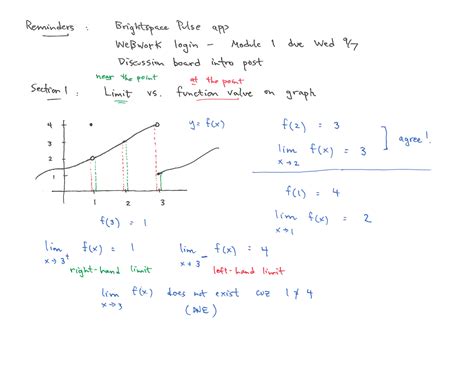 Reminders : Brightspace Pulse app
WeBWorK login - Module 1 due Wed 9/7
Discussion board intro post
near the point at the point
Section 1 : Limit vs. function value on graph
y = f(x)
4
3
2
1
1 2 3
f(2) = 3
lim f(x) = 3
x→2
agree!
f(1) = 4
lim f(x) = 2
x→1
f(3) = 1
lim f(x) = 1
x→3+
right-hand limit
lim f(x) = 4
x→3-
left-hand limit
lim f(x) does not exist cuz 1 ≠ 4
x→3 (DNE)